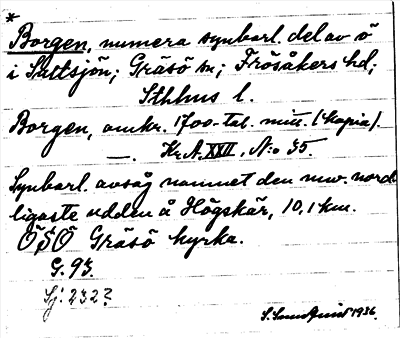 *
Borgen, numera synbarl. del av ö
i Saltsjön; Gräsö sn; Frösåkers hd;
Sthlms l.
Borgen, omkr. 1700-tal. min. (kopia).
—. Kr. A. XXII, N:o 35.
Synbarl. avsåg namnet den nuv. nord
ligaste udden å Högskär, 10,1 km.
ÖSÖ Gräsö kyrka.
G. 93.
Sj. 232?
1936.